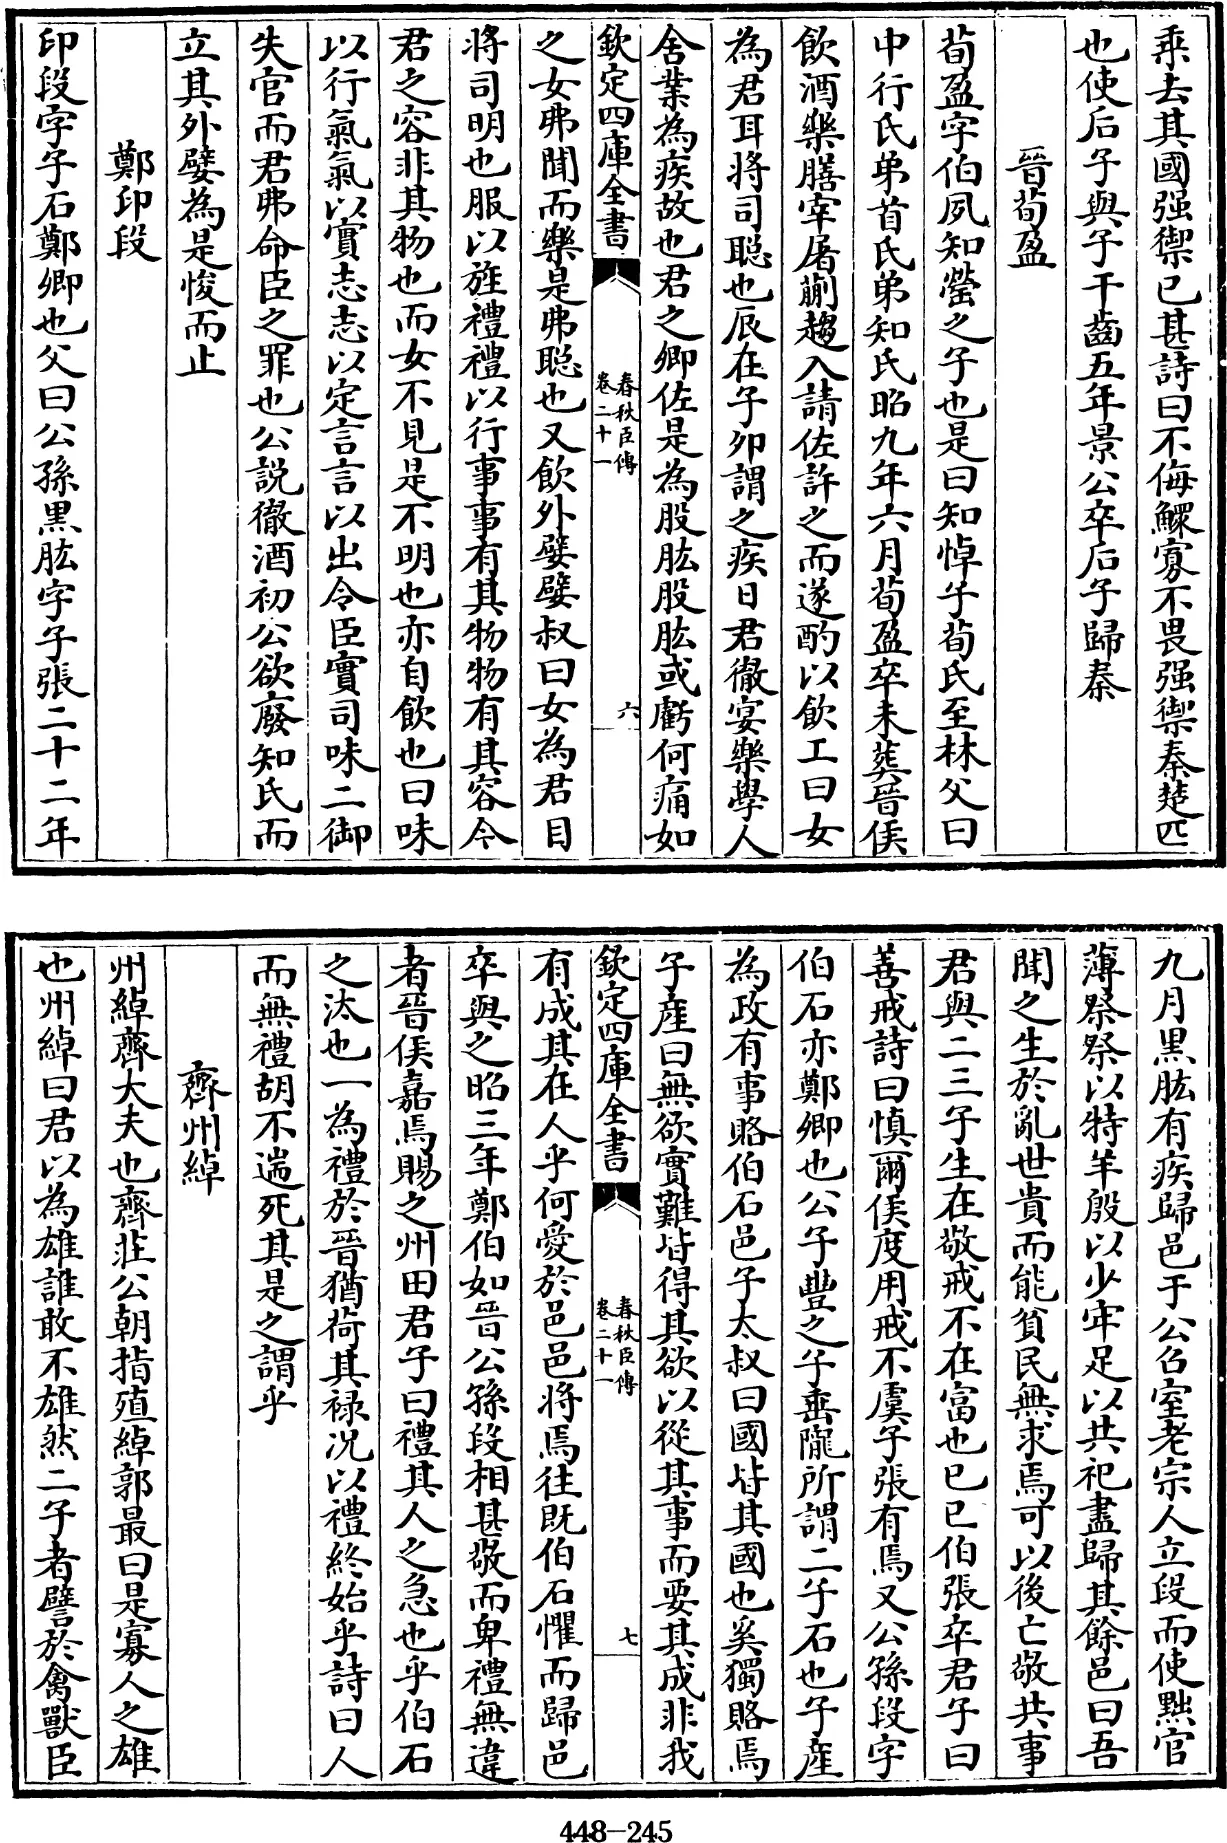 乘去其國强禦已甚詩曰不侮鰥寡不畏强禦秦楚匹
也使后子與子干齒五年景公卒后子歸秦
晉荀盈
荀盈字伯夙知瑩之子也是曰知悼子荀氏至林父曰
中行氏弟首氏弟知氏昭九年六月荀盈卒未葬晉侯
飲酒樂膳宰屠蒯趨入請佐許之而遂酌以飲工曰女
為君耳將司聰也辰在子夘謂之疾日君徹宴樂學人
舍業為疾故也君之卿佐是為股肱股肱或虧何痛如
欽定四庫全書
春秋臣傳
卷二十一
六
之女弗聞而樂是弗聰也又飲外嬖嬖叔曰女為君目
將司明也服以旌禮禮以行事事有其物物有其容今
君之容非其物也而女不見是不明也亦自飲也曰味
以行氣氣以實志志以定言言以出令臣實司味二御
失官而君弗命臣之罪也公説徹酒初公欲廢知氏而
立其外嬖為是悛而止
鄭印段
印段字子石鄭卿也父曰公孫黒肱字子張二十二年
九月黒肱有疾歸邑于公召室老宗人立段而使黜官
薄祭祭以特羊殷以少牢足以共祀盡歸其餘邑曰吾
聞之生於亂世貴而能貧民無求焉可以後亡敬共事
君與二三子生在敬戒不在富也已巳伯張卒君子曰
善戒詩曰慎爾侯度用戒不虞子張有焉又公孫段字
伯石亦鄭卿也公子豐之子垂隴所謂二子石也子産
為政有事賂伯石邑子太叔曰國皆其國也奚獨賂焉
子産曰無欲實難皆得其欲以從其事而要其成非我
欽定四庫全書
春秋臣傳
卷二十一
七
有成其在人乎何愛於邑邑將焉往既伯石懼而歸邑
卒與之昭三年鄭伯如晉公孫段相甚敬而卑禮無違
者晉侯嘉焉賜之州田君子曰禮其人之急也乎伯石
之汰也一為禮於晉猶荷其禄况以禮終始乎詩曰人
而無禮胡不遄死其是之謂乎
齊州綽
州綽齊大夫也齊莊公朝指殖綽郭最曰是寡人之雄
也州綽曰君以為雄誰敢不雄然二子者譬於禽獸臣
448-245